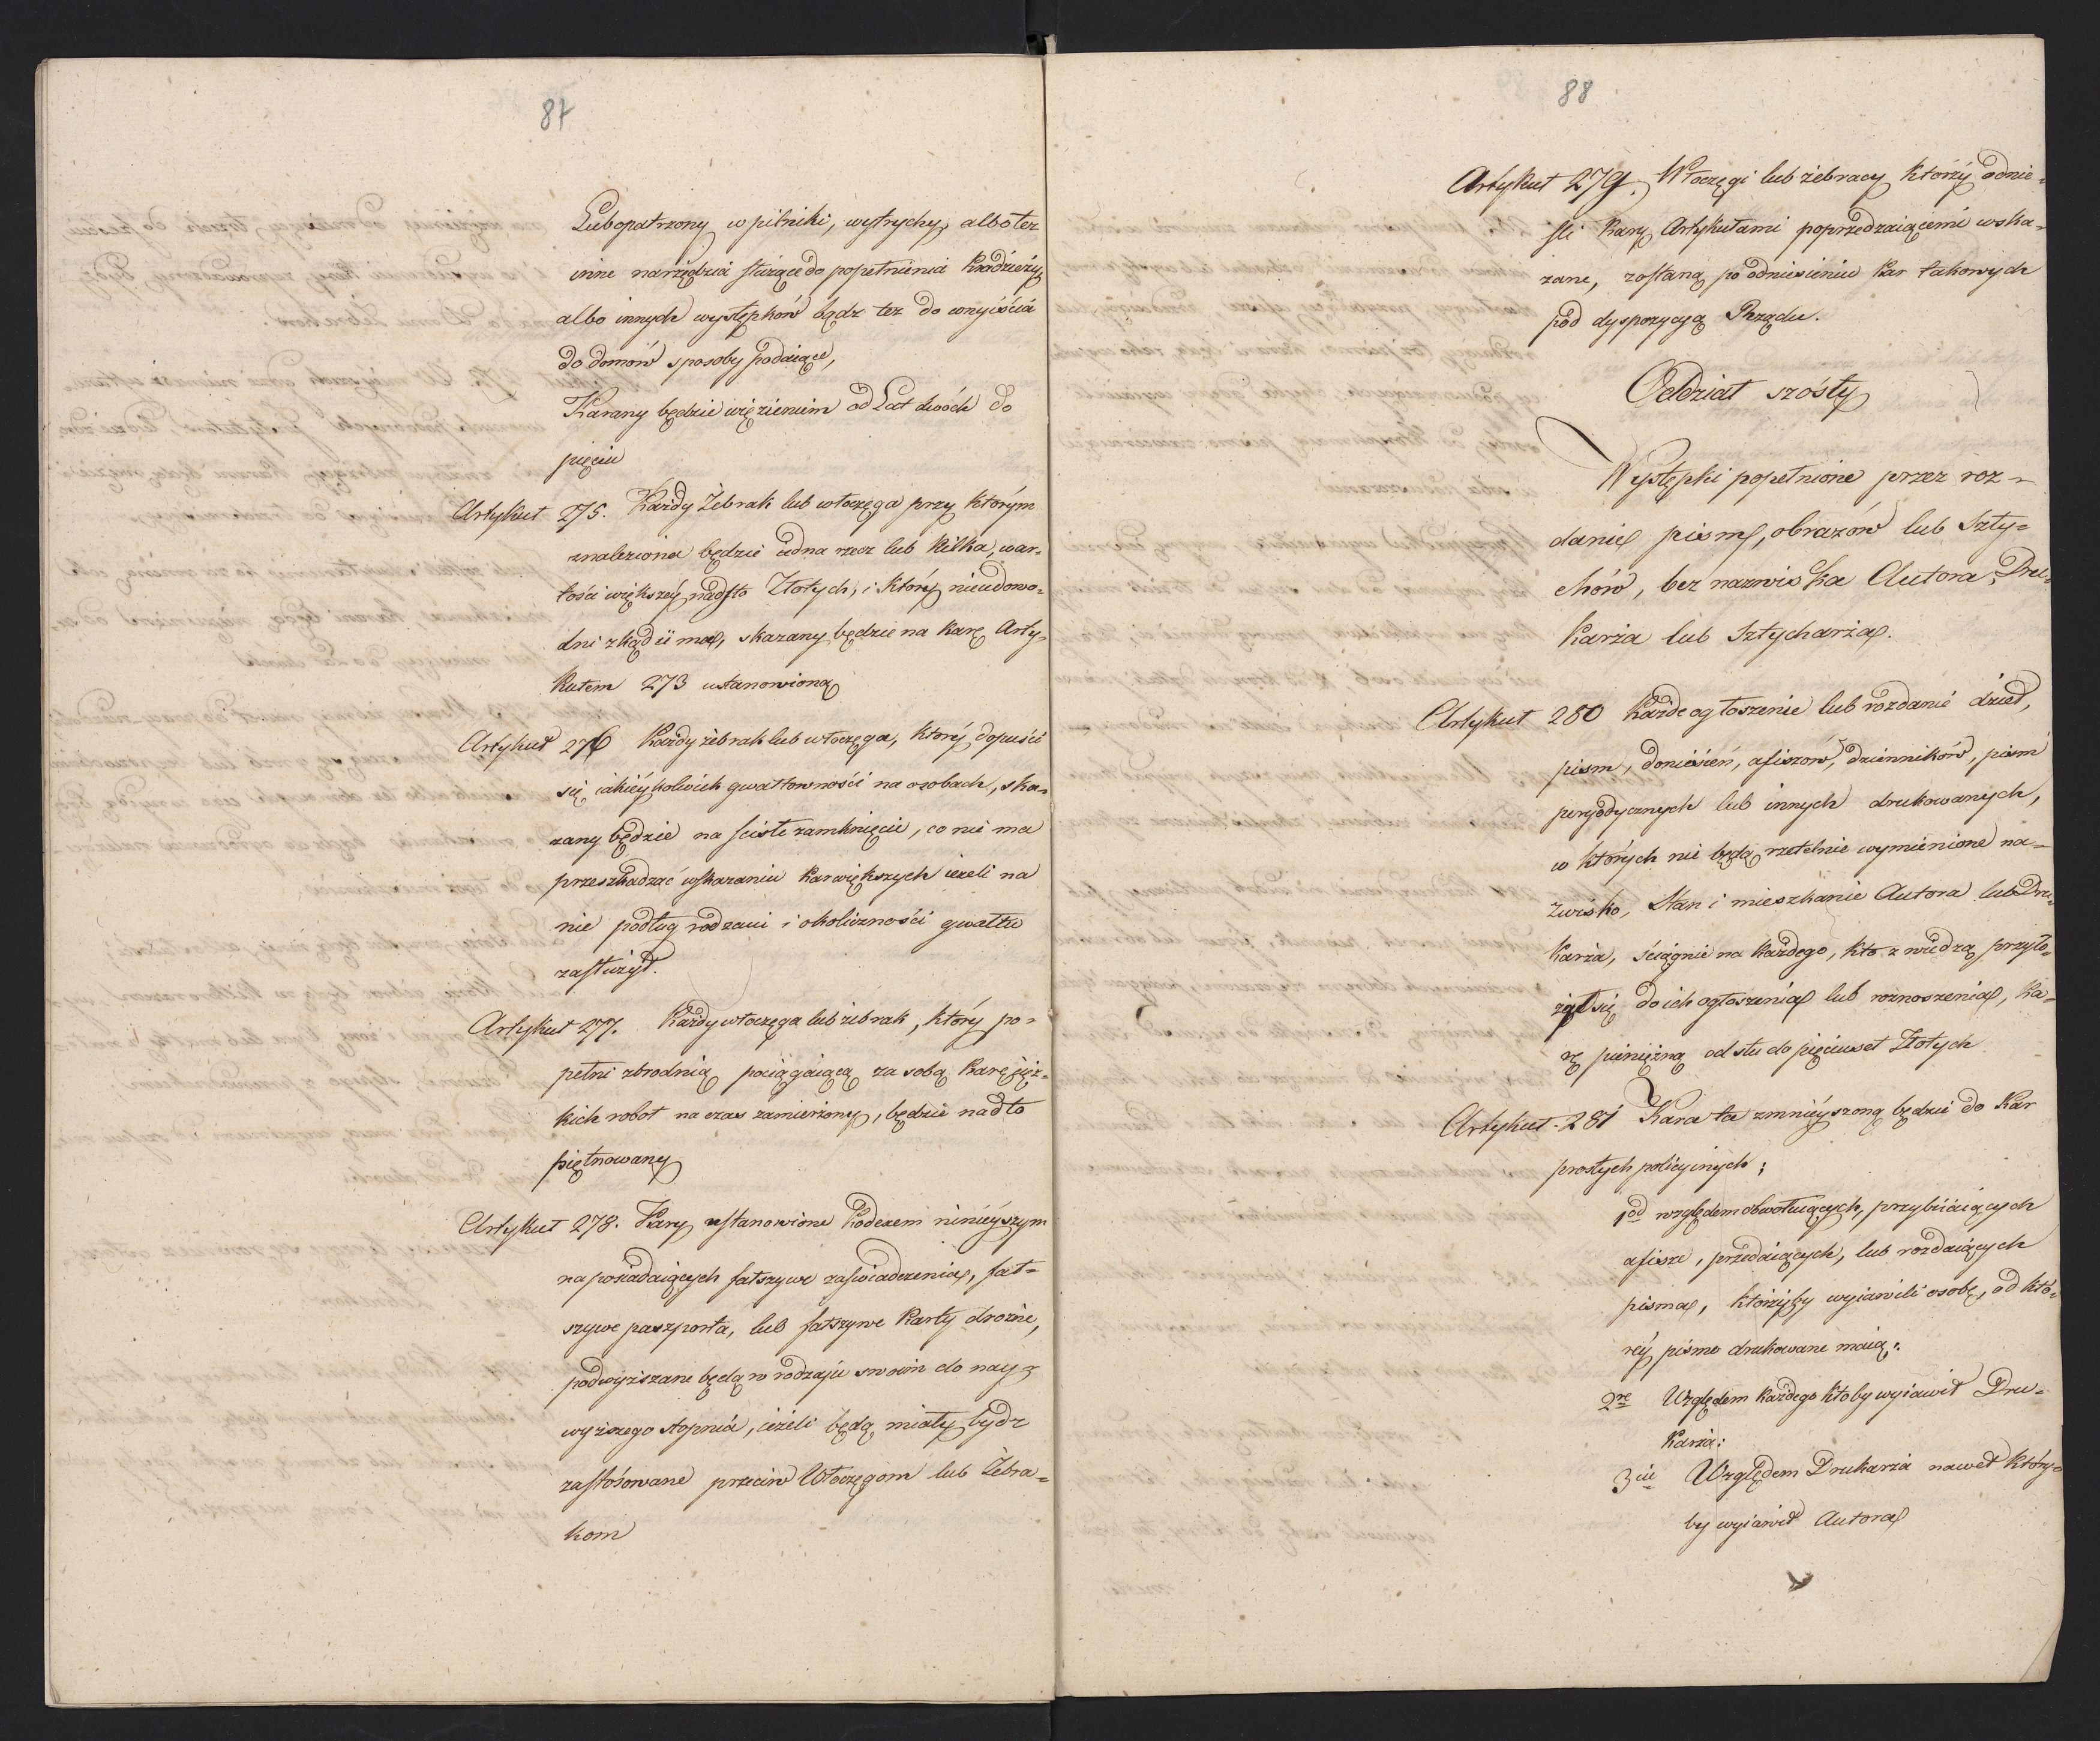 87
Lub opatrzony w pilniki, wytrychy, albo też
inne narzędzia służące do popełnienia kradzieży
albo innych występków bądz też do wnyiścia
do domów sposoby podaiące,
Karany będzie więzieniem od Lat dwóch do
pięciu
Artykuł 275. Każdy Żebrak lub włoczęga przy którym
znaleziona będzie iedna rzecz lub kilka, war-
tości większéy nad sto Złotych, i który nieudowo-
dni zkąd ié ma, skazany będzie na karę Arty-
kułem 273 ustanowioną
Artykuł 276 Każdy żebrak lub włoczęga, który dopuści
się iakiéykolwiek gwałtowności na osobach, ska-
zany będzie na ścisłe zamknięcie, co nie ma
przeszkadzać wskazaniu kar większych ieżeli na
nie podług rodzaiu i okoliczności gwałtu
zasłużył.
Artykuł 277. Każdy włoczęga lub żebrak, który po-
pełni zbrodnią pociągaiącą za sobą karę cięż-
kich robot na czas zamierzony, będzie nadto
piętnowany
Artykuł 278. Kary ustanowione Kodexem ninieyszym
na posiadaiących fałszywe zaświadczenia, fał-
szywe paszporta, lub fałszywe karty drożne,
podwyższane będą w rodzaju swoim do nay-
wyższego stopnia, ieżeli będą miały bydz
zastósowane przeciw Włoczęgom lub Żebra-
kom
88
Artykuł 279. Włoczęgi lub żebracy którzy odnie-
śli kary Artykułami poprzedzaiącemi wska-
zane, zostaną po odniesieniu kar takowych
pod dyspozycyą Rządu.
Oddział szósty
Występki popełnione przez roz-
danie pism, obrazów lub Szty-
chów, bez nazwiska Autora, Dru-
karża lub Sztycharża.
Artykuł 280 Każde ogłoszenie lub rozdanie dzieł,
pism, doniesień, afiszów, dzienników, pism
peryodycznych lub innych drukowanych,
w których nie będą rzetelnie wymienione na-
zwisko, stan i mieszkanie Autora lub Dru-
karża, ściągnie na każdego, kto z wiedzą przyło-
żył się do ich ogłoszenia lub roznoszenia, ka-
rę pieniężną od stu do pięciuset Złotych
Artykuł 281 Kara ta zmnieyszoną będzie do kar
prostych policyinych;
1od względem obwołuiących, przybiiaiących
afisze, przedaiących, lub rozdaiących
pisma, którzyby wyiawili osobę, od któ-
réy pismo drukowane maią:
2re Względem każdego ktoby wyiawił Dru-
karża:
3cie Względem Drukarża nawet który-
by wyiawił Autora